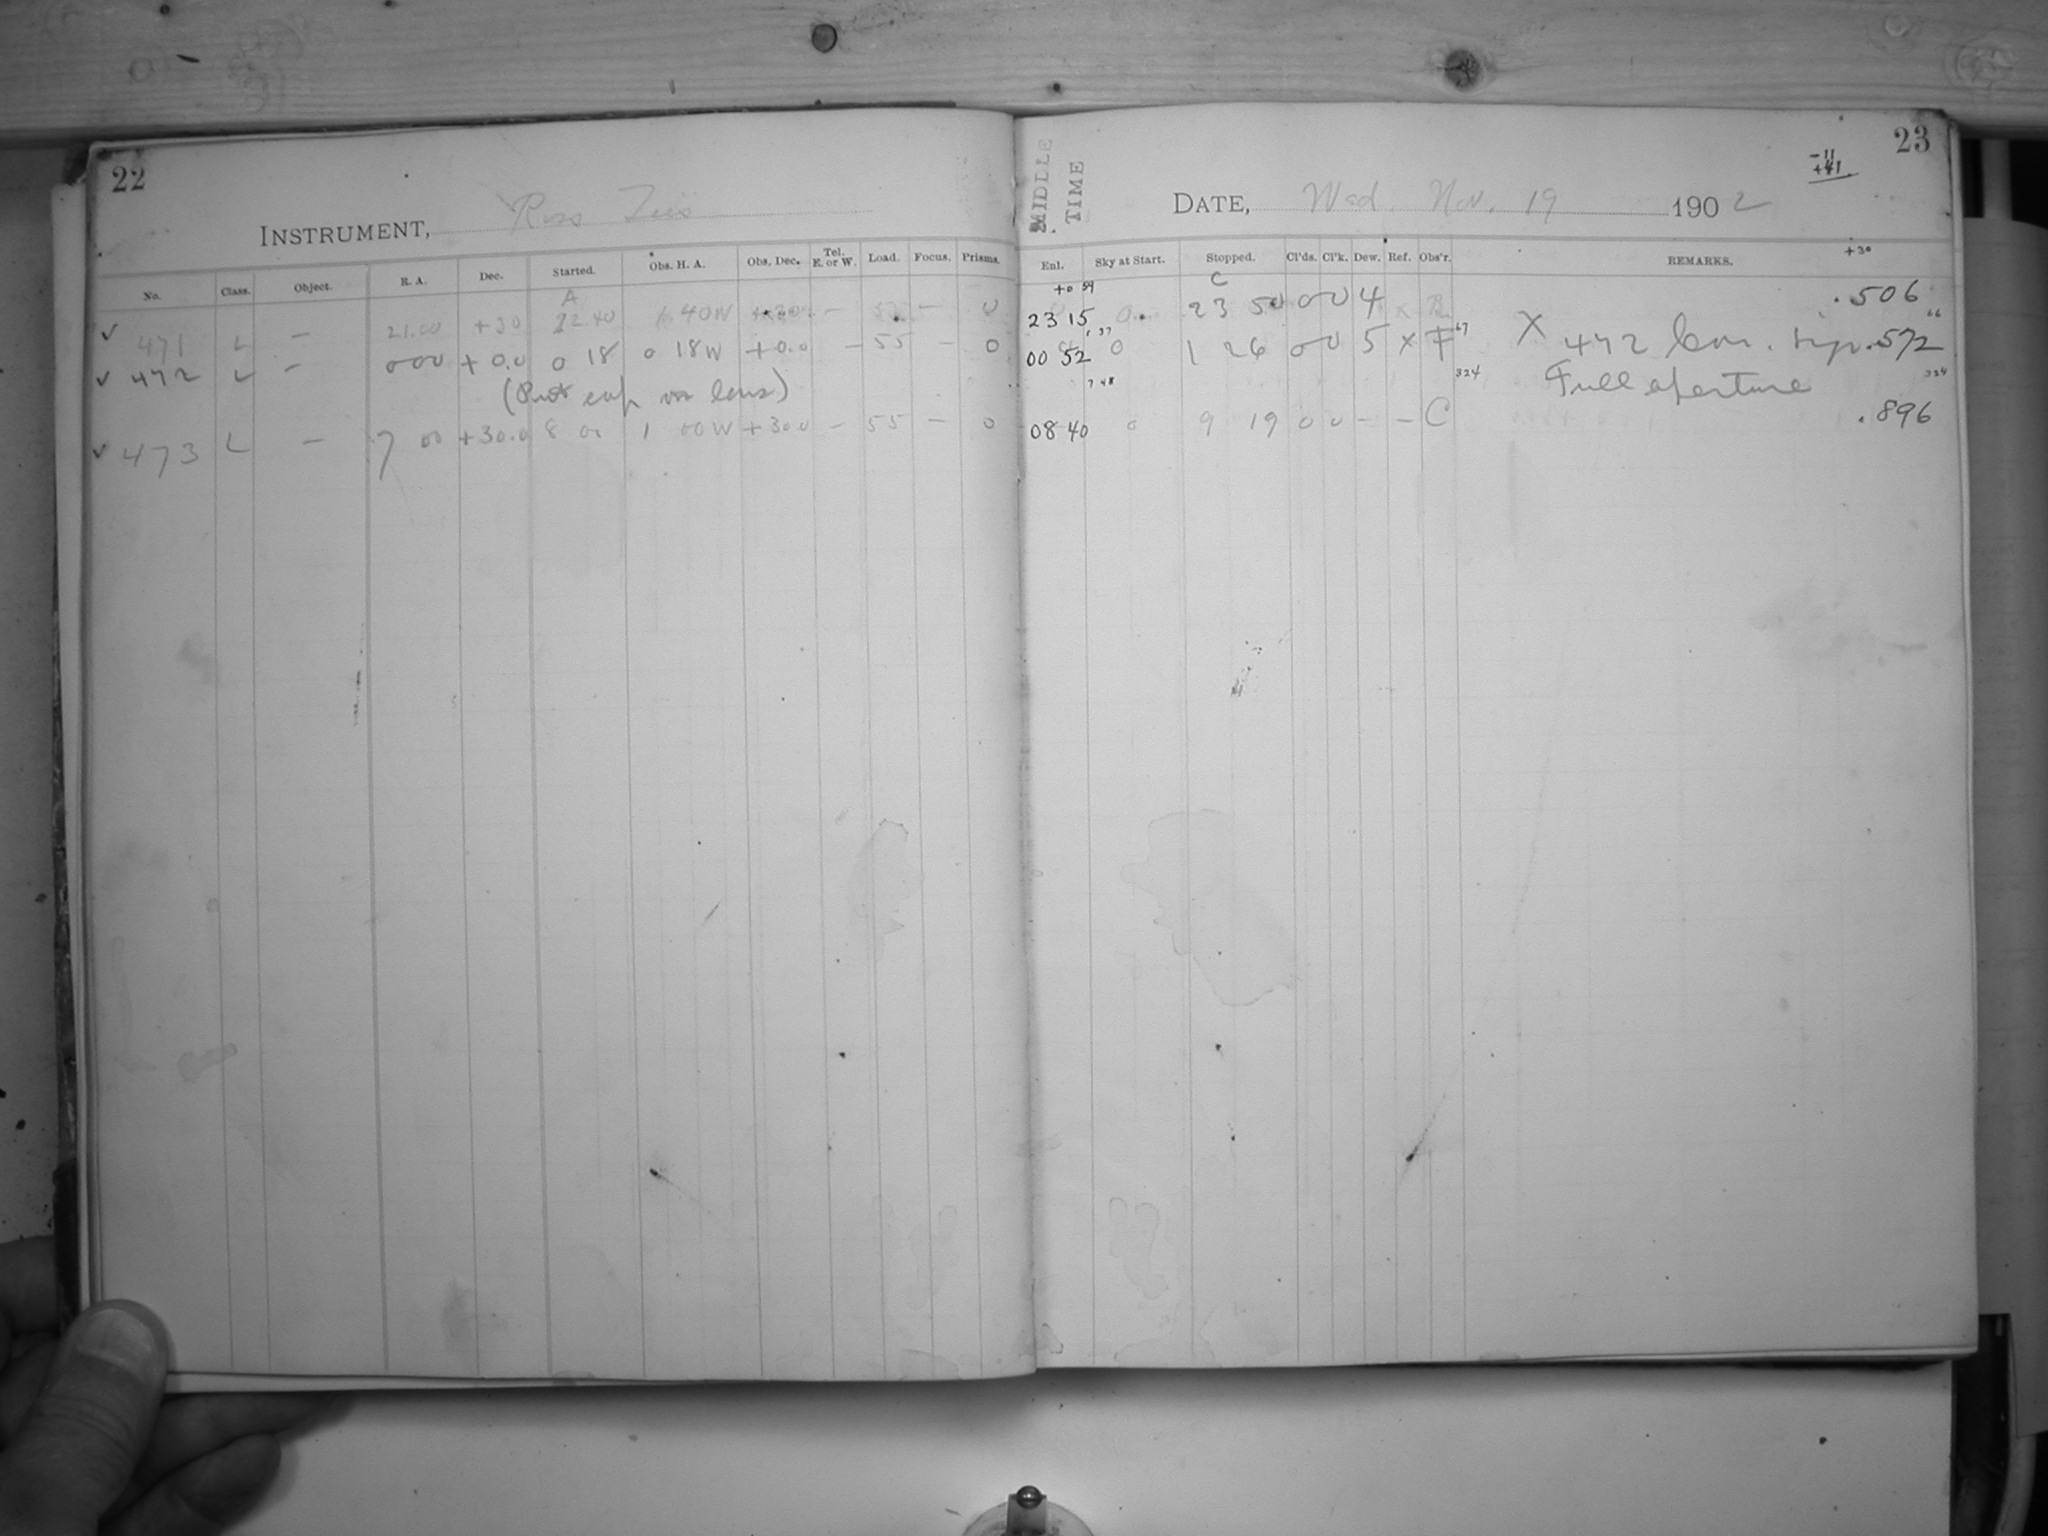 22
INSTRUMENT, Ross Zeiss
No. Class. Object. R. A. Dec. Started. Obs. H. A. Obs. Dec. Tel. E. or W. Load. Focus. Prisms.
A
✓ 471 L — 21.00 +30 22 40 1.40W +30. — 55 — 0
✓ 472 L — 000 +0.0 0 18 0 18W +0.0 — 55 — 0
(Put cap on lens)
✓ 473 L — 7 00 +30.0 8 00 1 00W +30.0 — 55 — 0
23
-11
+41
MIDDLE TIME
DATE, Wed. Nov. 19 1902
+30
Enl. Sky at Start. Stopped. Cl'ds. Cl'k. Dew. Ref. Obs'r. REMARKS.
+0 59 C
23 15 0 23 50 0 0 4 x B .506
1 37 67 66
00 52 0 1 26 0 0 5 x F X 472 .572
7 48 324 Full aperture 324
08 40 0 9 19 0 0 — — C .896